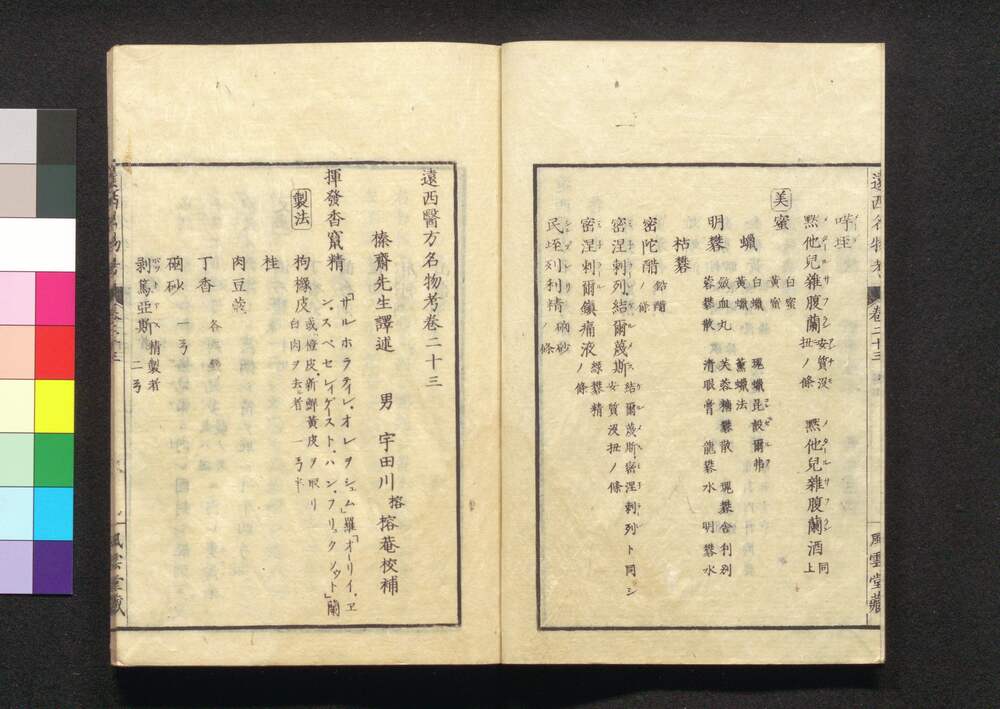 遠西名物考 卷二十三 風雲堂藏
嗶㘴
㷔他兒雜腹蘭 安質没扭ノ條 同 㷔他兒雜腹蘭酒 上
美
蜜 白蜜 黃蜜
蠟 白蠟 黃蠟 琥蠟昆設爾弗 薰蠟法
明礬 斂血丸 芙蓉糖礬散 瑰礬舍利別
蓉礬散 清眼膏 龍礬水 明礬水
枯礬
密陀醋 鉛醋ノ條
密涅刺列結爾蔑斯 結爾蔑斯密涅刺列ト同シ 安質没扭ノ條
密涅刺爾鎮痛液 綠礬精ノ條
民垤列利精 硇砂ノ條
遠西醫方名物考卷二十三
榛齋先生譯述 男 宇田川 榕 榕菴校補
揮發香竄精 「サルホラティレ・オレヲシュム」羅「オーリイ、ヱン、スペセレイゲースト・ハン・フリュクソウト」蘭
製法 枸櫞皮 或橙皮、新鮮黃皮ヲ取リ白肉ヲ去ル者 一弓半
桂
肉豆蔲
丁香 各
硇砂 一弓
剥篤亞斯 精製者 二弓
卷二十三
風雲堂藏